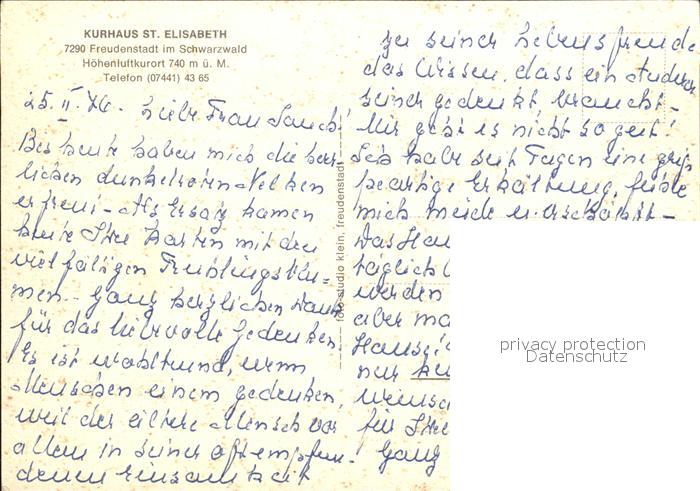 KURHAUS ST. ELISABETH
7290 Freudenstadt im Schwarzwald
Höhenluftkurort 740 m ü. M.
Telefon (07441) 43 65
25. II. 76. Liebe Frau
Bis heute haben mich die herr-
lichen dunkelroten Nelken
erfreut - Als Ersatz kamen
heute Ihre Karten mit den
vielfältigen Frühlingsblu-
men. - Ganz herzlichen Dank
für das liebevolle Gedenken.
Es ist wohltuend, wenn
Menschen einem gedenken,
weil der ältere Mensch vor
allem in seiner oft empfun-
denen Einsamkeit
zu seiner Lebensfreude
das Wissen, dass ein Anderer
seiner gedenkt braucht -
Mir geht es nicht so gut!
Ich habe seit Tagen eine grip
peartige Erkältung, fühle
mich müde u. erschöpft -
Das Hau
täglich
werden
aber ma
Hausi
nur
wünsc
für Ihre
Ganz
foto-studio klein, freudenstadt
privacy protection
Datenschutz